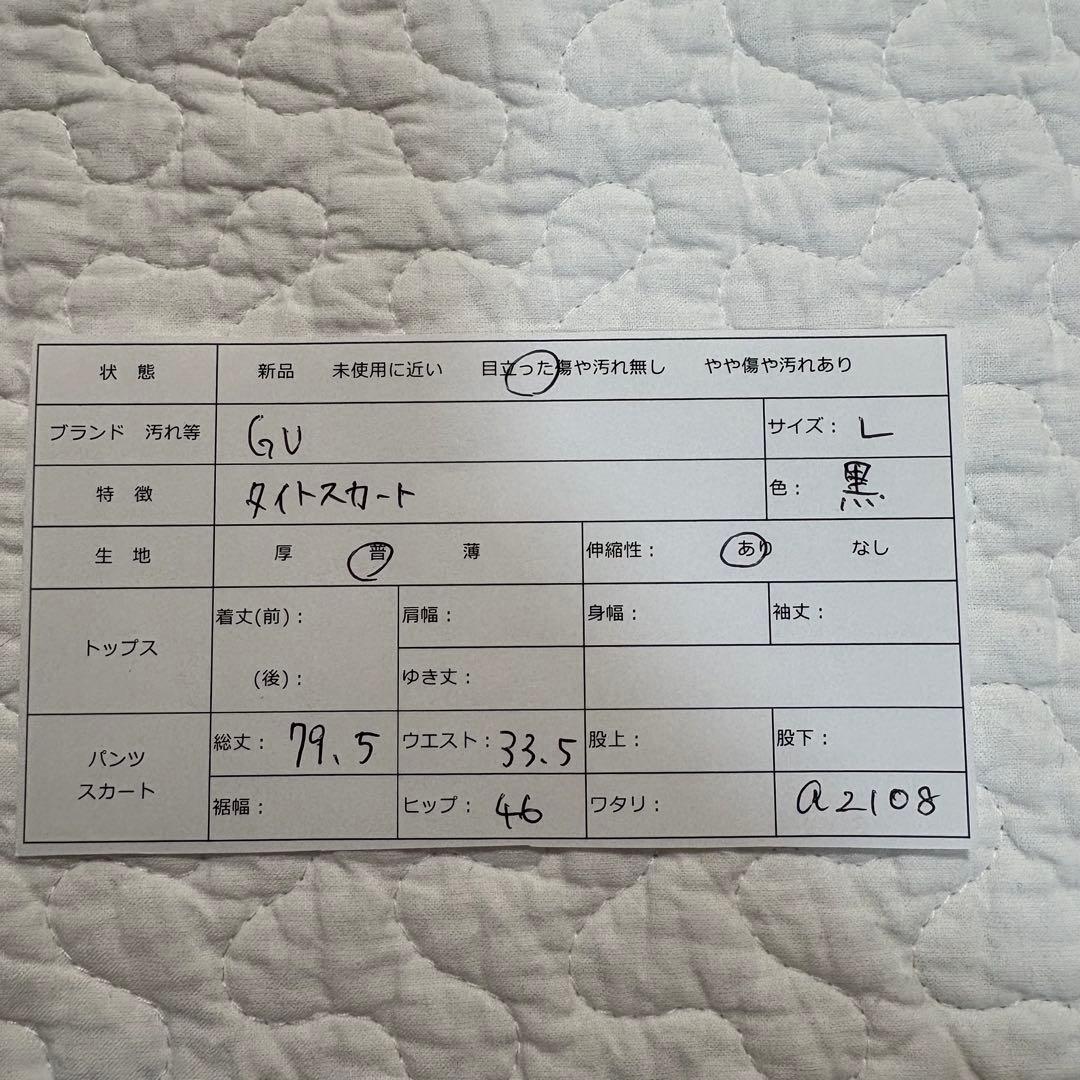 状態 新品 未使用に近い 目立った傷や汚れ無し やや傷や汚れあり
ブランド 汚れ等 GU サイズ： L
特徴 タイトスカート 色： 黒
生地 厚 普 薄 伸縮性： あり なし
トップス 着丈(前)： 肩幅： 身幅： 袖丈：
(後)： ゆき丈：
パンツ スカート 総丈： 79.5 ウエスト： 33.5 股上： 股下：
裾幅： ヒップ： 46 ワタリ： a2108